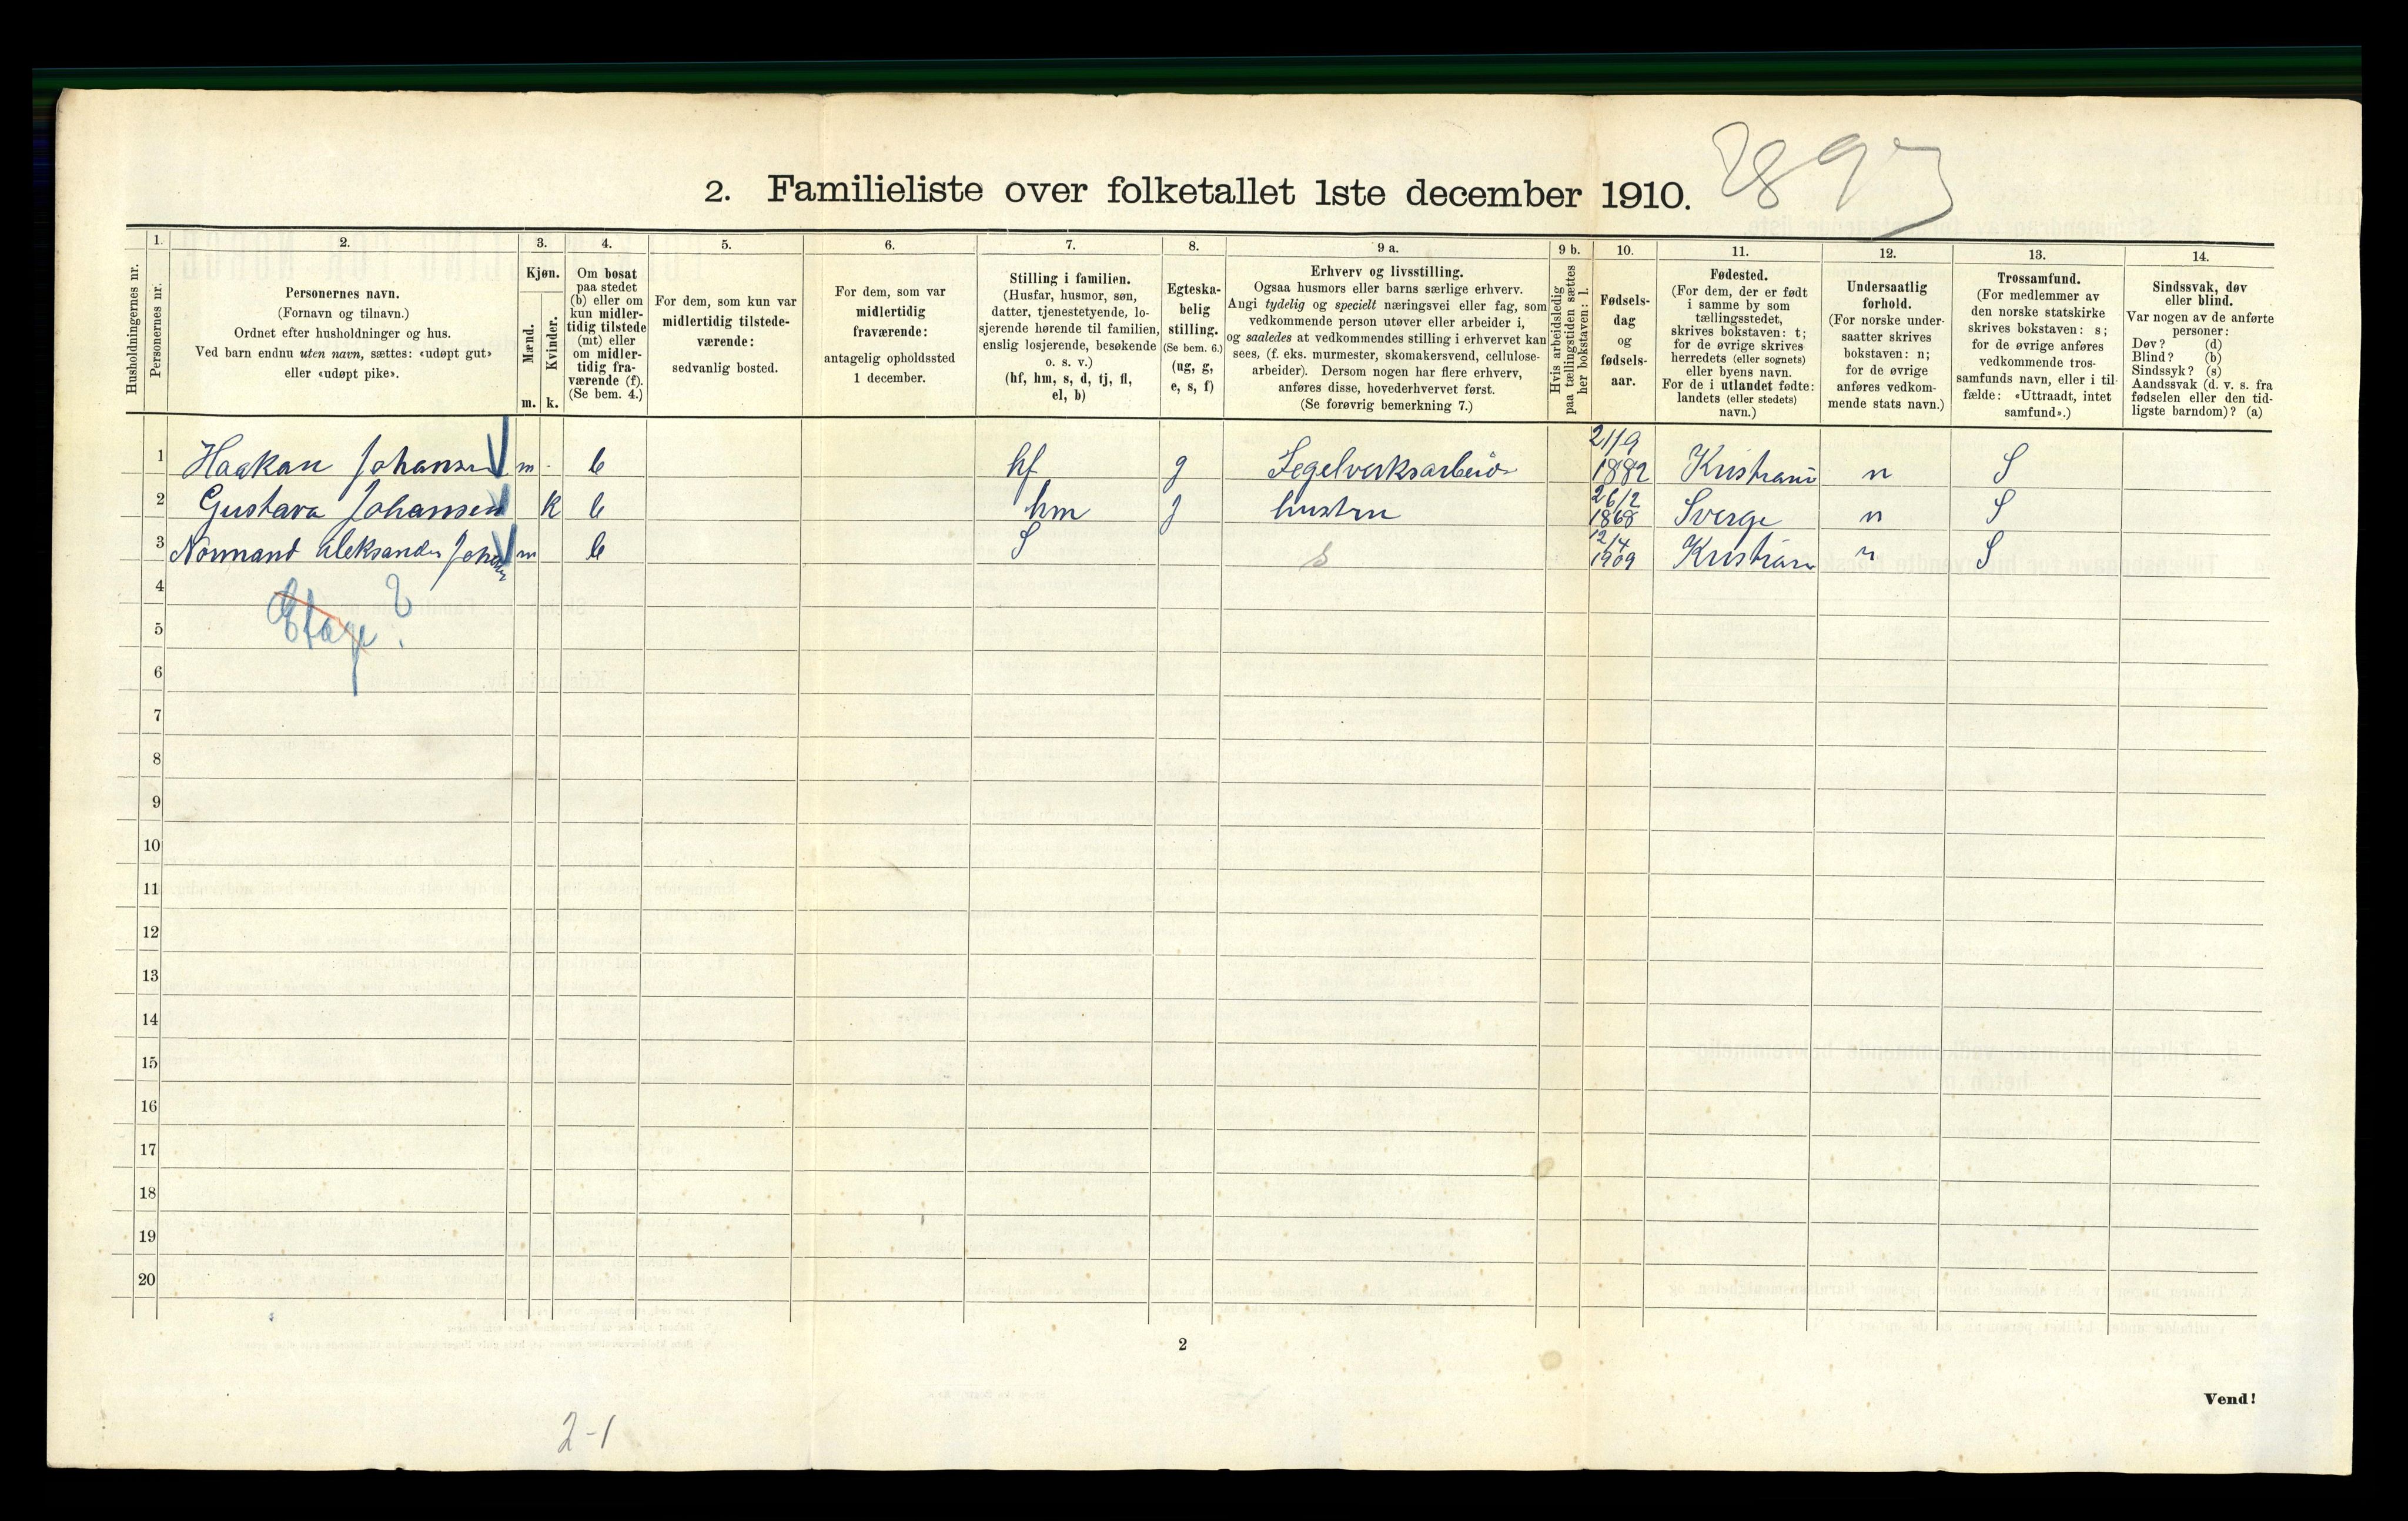 2897
2. Familieliste over folketallet 1ste december 1910.
Husholdningernes nr.
1.
Personernes nr.
2.
Personernes navn.
(Fornavn og tilnavn.)
Ordnet efter husholdninger og hus.
Ved barn endnu uten navn, sættes: «udøpt gut»
eller «udøpt pike».
3.
Kjøn.
Mænd.
Kvinder.
m. k.
4.
Om bosat
paa stedet
(b) eller om
kun midler-
tidig tilstede
(mt) eller
om midler-
tidig fra-
værende (f).
(Se bem. 4.)
5.
For dem, som kun var
midlertidig tilstede-
værende:
sedvanlig bosted.
6.
For dem, som var
midlertidig
fraværende:
antagelig opholdssted
1 december.
7.
Stilling i familien.
(Husfar, husmor, søn,
datter, tjenestetyende, lo-
sjerende hørende til familien,
enslig losjerende, besøkende
o. s. v.)
(hf, hm, s, d, tj, fl,
el, b)
8.
Egteska-
belig
stilling.
(Se bem. 6.)
(ug, g,
e, s, f)
9 a.
Erhverv og livsstilling.
Ogsaa husmors eller barns særlige erhverv.
Angi tydelig og specielt næringsvei eller fag, som
vedkommende person utøver eller arbeider i,
og saaledes at vedkommendes stilling i erhvervet kan
sees, (f. eks. murmester, skomakersvend, cellulose-
arbeider). Dersom nogen har flere erhverv,
anføres disse, hovederhvervet først.
(Se forøvrig bemerkning 7.)
9 b.
Hvis arbeidsledig
paa tællingstiden sættes
her bokstaven: l.
10.
Fødsels-
dag
og
fødsels-
aar.
11.
Fødested.
(For dem, der er født
i samme by som
tællingsstedet,
skrives bokstaven: t;
for de øvrige skrives
herredets (eller sognets)
eller byens navn.
For de i utlandet fødte:
landets (eller stedets)
navn.)
12.
Undersaatlig
forhold.
(For norske under-
saatter skrives
bokstaven: n;
for de øvrige
anføres vedkom-
mende stats navn.)
13.
Trossamfund.
(For medlemmer av
den norske statskirke
skrives bokstaven: s;
for de øvrige anføres
vedkommende tros-
samfunds navn, eller i til-
fælde: «Uttraadt, intet
samfund».)
14.
Sindssvak, døv
eller blind.
Var nogen av de anførte
personer:
Døv? (d)
Blind? (b)
Sindssyk? (s)
Aandssvak (d. v. s. fra
fødselen eller den tid-
ligste barndom)? (a)
1 Haakan Johansen m b hf g Tegelverksarbeid 21/9 1882 Kristiani n S
2 Gustava Johansen k b hm g hustru 26/2 1868 Sverge n S
3 Normand Aleksander b S s 12/4 1909 Kristian n S
4
Etage?
5
6
7
8
9
10
11
12
13
14
15
16
17
18
19
20
2
Vend!
2-1